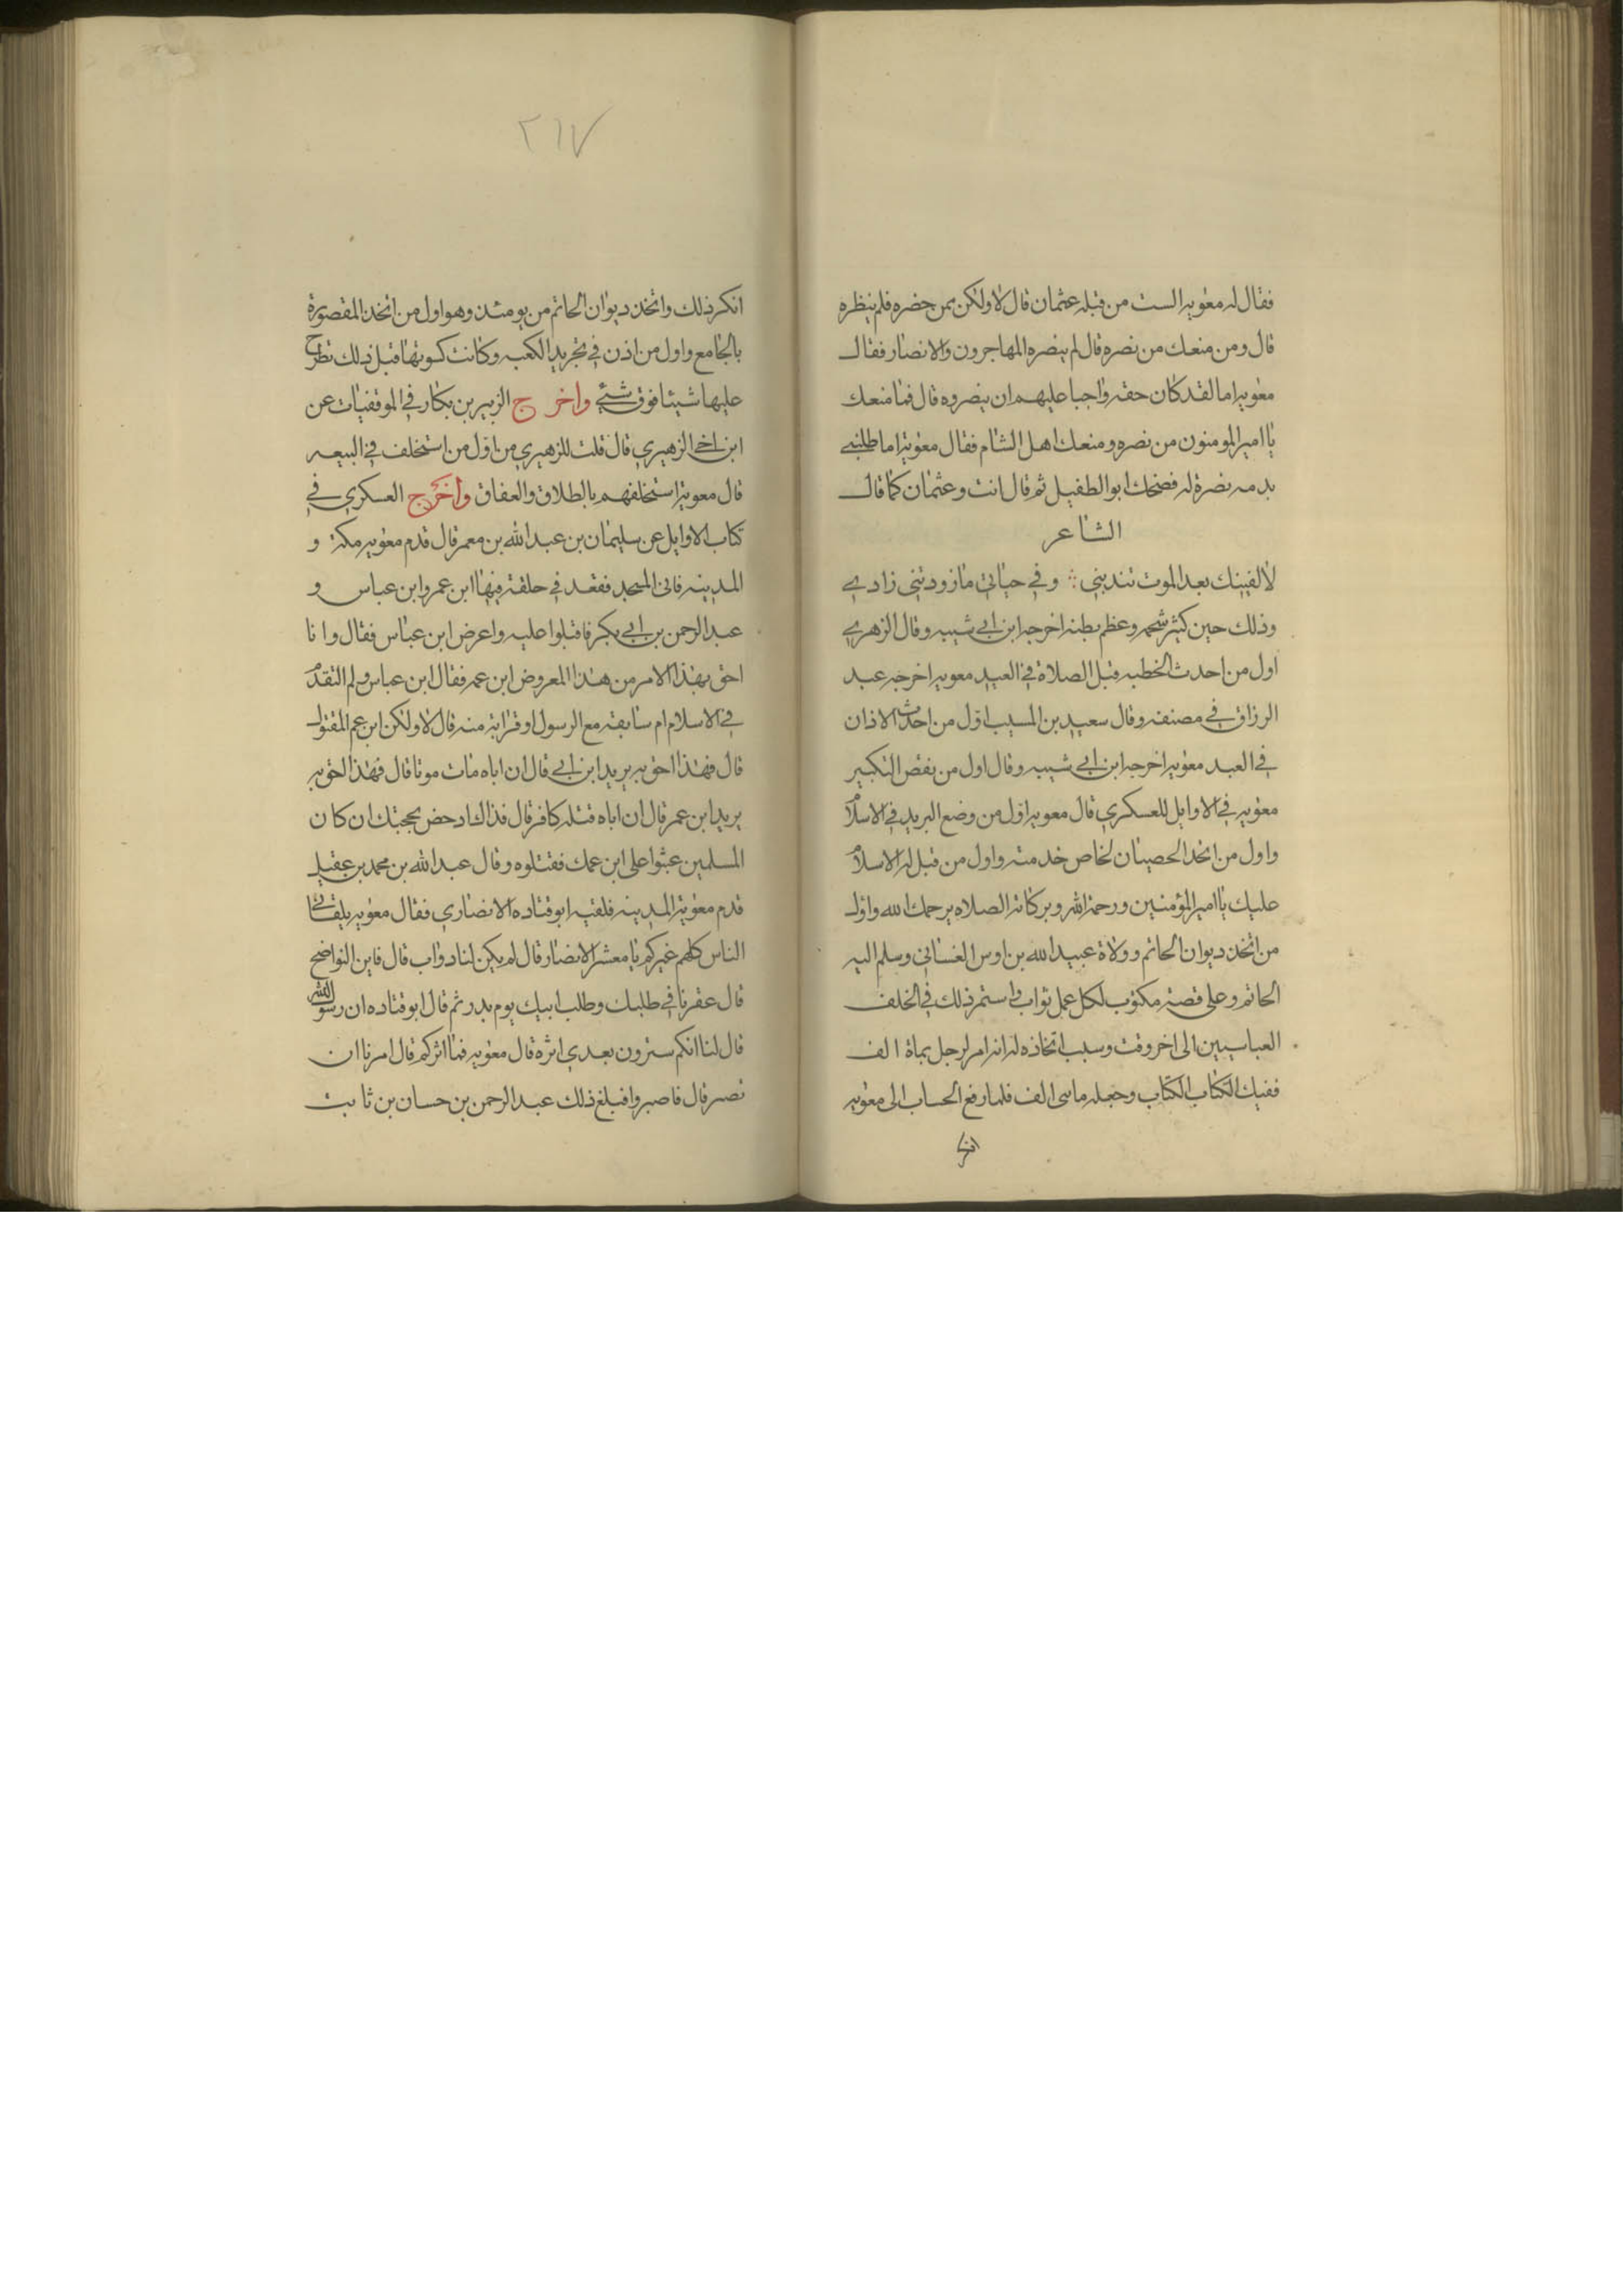 فقال له معوية الست من قتلة عثمان قال لا ولكن بمن حضره فلم ينظره
قال ومن منعك من نصره قال لم ينصره المهاجرون والانصار فقال
معوية اما لقد كان حقه واجبا عليهم ان ينصروه قال فما منعك
يا امير المومنون من نصره ومنعك اهل الشام فقال معوية اما طلبي
بدمه نصرة له فضحك ابو الطفيل ثم قال انت وعثمان كما قال
الشاعر
لا لفينك بعد الموت تندبني ∴ وفي حياتي ما زودتني زادي
وذلك حين كثر شحمه وعظم بطنه اخرجه ابن ابي شيبه وقال الزهري
اول من احدث الخطبه قبل الصلاة في العيد معويه اخرجه عبد
الرزاق في مصنفه وقال سعيد بن المسيب اول من احدث الاذان
في العيد معويه اخرجه ابن ابي شيبه وقال اول من نقص التكبير
معويه في الاوايل للعسكري قال معويه اول من وضع البريد في الاسلام
واول من اتخد الحصيان لخاص خدمته واول من قبل له الاسلام
عليك يا امير المؤمنين ورحمة الله وبركاته الصلاه يرحمك الله واول
من اتخذ ديوان الحاتم وولاة عبيد الله بن اوس الغساني وسلم اليه
الحاتم وعلى قصة مكتوب لكل عمل ثواب واستمر ذلك في الخلف
العباسيين الى اخر وقت وسبب اتخاذه له انه امر لرجل بماة الف
ففيك الكتاب الكتاب وجعله ماتى الف فلما رفع الحساب الى معويه
انكر
٢١٧
انكر ذلك واتخذ ديوان الحاتم من يومئذ وهو اول من اتخذ المقصورة
بالجامع واول من اذن في تجريد الكعبه وكانت كسوتها قبل ذلك تطرح
عليها شيئا فوق شئي واخرج الزبير بن بكار في الموقفيات عن
ابن اخي الزهيري قال قلت للزهيري من اول من استخلف في البيعه
قال معوية استخلفهم بالطلاق والعفاق واخرج العسكري في
كتاب الاوايل عن سليمان بن عبد الله بن معمر قال قدم معويه مكة و
المدينه فاتى المسجد فقعد في حلقة فيها ابن عمر وابن عباس و
عبد الرحمن بن ابي بكر فاقبلوا عليه واعرض ابن عباس فقال وانا
احق بهذا الامر من هذا المعروض ابن عمه فقال ابن عباس ولم التقدم
في الاسلام ام سابقه مع الرسول او قرابة منه قال لا ولكن ابن عم المقتول
قال فهذا احق به يريد ابن ابي قال ان اباه مات موتا قال فهذا احق به
يريد ابن عمر قال ان اباه قتله كافر قال فذاك ادحض بحجتك ان كان
المسلمين عبثوا على ابن عمك فقتلوه وقال عبد الله بن محمد بن عقيل
قدم معوية المدينه فلقيه ابو قتاده الانصاري فقال معويه يلقاني
الناس كلهم غيركم يا معشر الانصار قال لم يكن لنا دواب قال فاين النواضح
قال عقرنا في طلبك وطلب ابيك يوم بدر ثم قال ابو قتاده ان رسول الله
قال لنا انكم سترون بعدي اثره قال معويه فما اثركم قال امرنا ان
نصبر قال فاصبروا فبلغ ذلك عبد الرحمن بن حسان بن ثابت